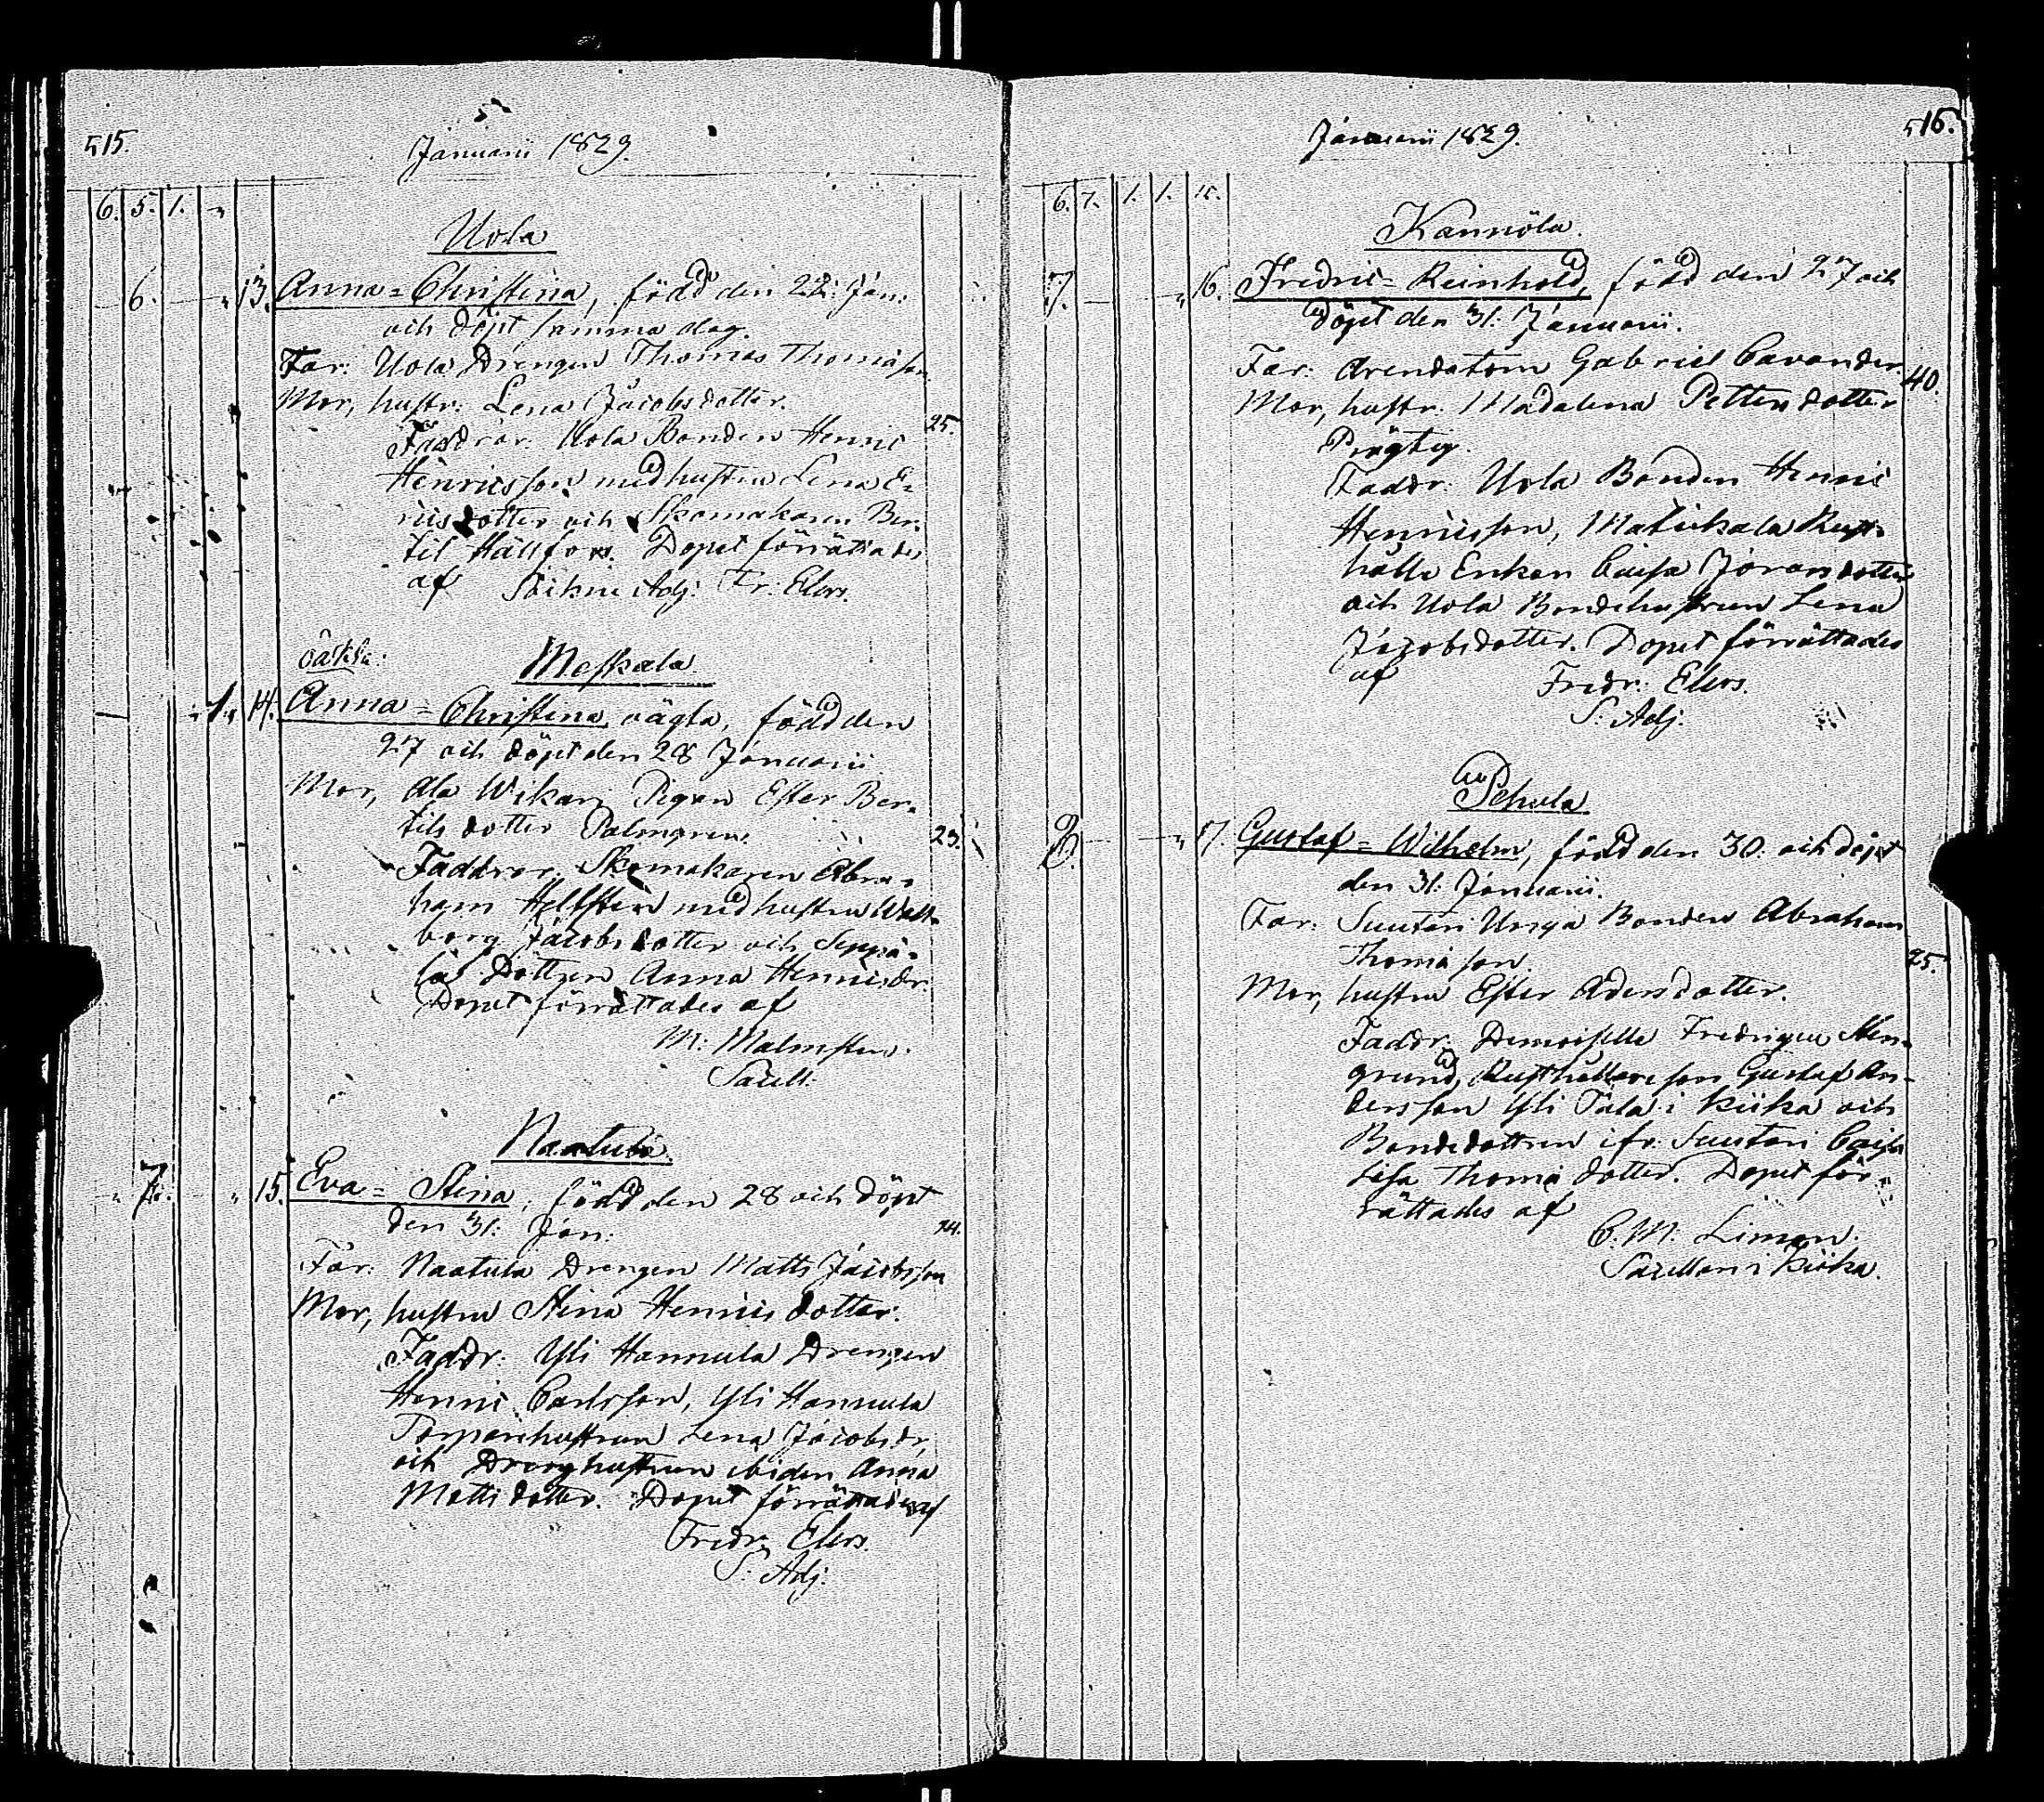 515.
Januarii 1829.
6. 5. 1. "
Uola
6. " 13. Anna=Christina, född den 22: Jan:
och döpt samma dag.
Far: Uola Drengen Thomas Thomasson.
Mor, hustr: Lena Jacobsdotter.
25.
Faddrar: Uola Bonden Henric
Henricsson med hustru Lena E=
ricsdotter och Skomakaren Ber=
til Hällfors. Dopet förrättades
af Sockne Adj: Fr: Elers.
oäkta:
Meskala
1. 14. Anna=Christina, oägta, född den
27 och döpt den 28 Januarii
Mor, Ala Wikari Pigan Ester Ber=
tilsdotter Palmgren.
23.
Faddrar: Skomakaren Abra=
ham Hellsten med hustru Wall=
borg Jacobsdotter och Seppä=
lä Dottren Anna Henricsdr.
Dopet förrättades af
M: Malmsten.
Sacell:
Naatula
7. " 15. Eva=Stina, född den 28 och döpt
den 31: Jan:
24.
Far: Naatula Drengen Matts Jacobsson
Mor, hustru Stina Henricsdotter.
Faddr: Yli Hannula Drengen
Henric Carlsson, Yli Hannula
Torparehustrun Lena Jacobsdr,
och Drenghustrun ibidem Anna
Mattsdotter. Dopet förrättades af
Fredr: Elers.
S: Adj:
516.
Januarii 1829.
6. 7. 1. 1. 15.
Kannöla.
7. " 16. Fredric=Reinhold, född den 27 och
döpt den 31: Januarii.
Far: Arendatorn Gabriel Cavander
40.
Mor, hustr: Madalena Pettersdotter
Prögtig.
Faddr: Uola Bonden Henric
Henricsson, Matickala Rust=
hålls Enkan Caisa Jöransdotter
och Uola Bondehustrun Lena
Jacobsdotter. Dopet förrättades
af Fredr: Elers.
S: Adj:
Pehula
8. " 17. Gustaf=Wilhelm, född den 30: och döpt
den 31: Januarii.
Far: Suutari Unga Bonden Abraham
Thomasson.
25.
Mor, hustru Ester Adersdotter.
Faddr: Demoiselle Fredrique Sten=
grund, Rusthållaresson Gustaf An=
dersson Yli Tala i Kiika och
Bondedottren ifr: Suutari Caisa
Lisa Thomædotter. Dopet för=
rättades af
C. M: Limon.
Sacellan i Kiika.